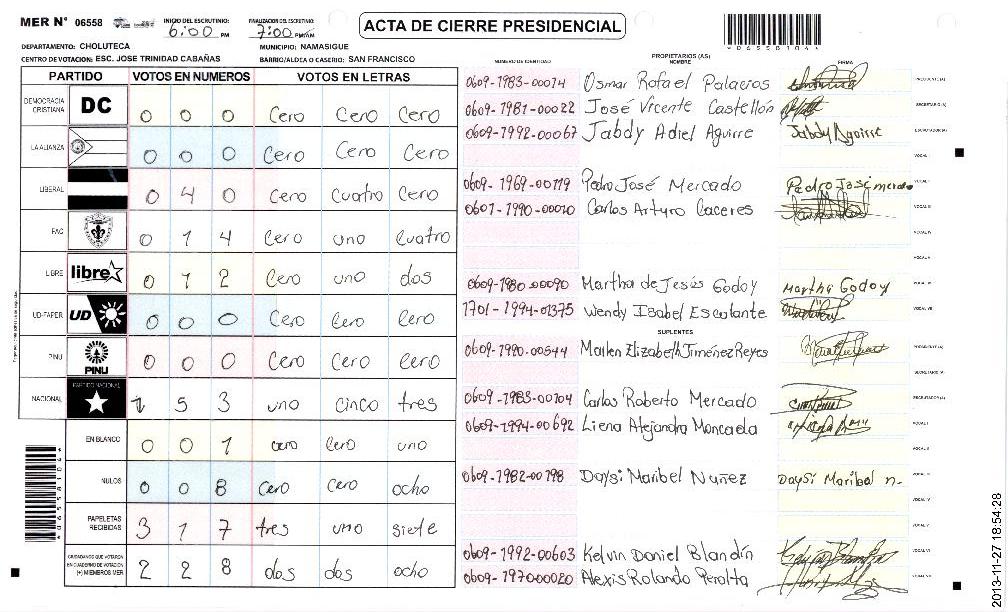 MER Nº 06558
INICIO DEL ESCRUTINIO: 6:00 PM
FINALIZACION DEL ESCRUTINIO: 7:00 PM/AM
ACTA DE CIERRE PRESIDENCIAL
*0655810*
DEPARTAMENTO: CHOLUTECA MUNICIPIO: NAMASIGUE
CENTRO DE VOTACION: ESC. JOSE TRINIDAD CABAÑAS BARRIO/ALDEA O CASERIO: SAN FRANCISCO
PARTIDO VOTOS EN NUMEROS VOTOS EN LETRAS
DEMOCRACIA CRISTIANA DC 0 0 0 Cero Cero Cero
LA ALIANZA 0 0 0 Cero Cero Cero
LIBERAL 0 4 0 Cero Cuatro Cero
PAC 0 1 4 Cero uno Cuatro
LIBRE libre 0 1 2 Cero uno dos
UD-FAPER UD 0 0 0 Cero Cero Cero
PINU PINU 0 0 0 Cero Cero Cero
NACIONAL PARTIDO NACIONAL 1 5 3 uno cinco tres
EN BLANCO 0 0 1 cero Cero uno
NULOS 0 0 8 Cero cero ocho
PAPELETAS RECIBIDAS 3 1 7 tres uno siete
CIUDADANOS QUE VOTARON EN CUADERNO DE VOTACION (+) MIEMBROS MER 2 2 8 dos dos ocho
PROPIETARIOS (AS)
NUMERO DE IDENTIDAD NOMBRE FIRMA
0609-1983-00074 Osmar Rafael Palacios PRESIDENTE (A)
0609-1981-00022 José Vicente Castellón SECRETARIO (A)
0609-1992-00067 Jabdy Adiel Aguirre Jabdy Aguirre ESCRUTADOR (A)
VOCAL I
0609-1969-00119 Pedro José Mercado Pedro Jose mercado VOCAL II
0607-1990-00020 Carlos Arturo Caceres VOCAL III
VOCAL IV
VOCAL V
0609-1980-00090 Martha de Jesús Godoy Martha Godoy VOCAL VI
1701-1994-01375 Wendy Isabel Escalante VOCAL VII
SUPLENTES
0609-1990-00544 Marlen Elizabeth Jiménez Reyes PRESIDENTE (A)
SECRETARIO (A)
0609-1983-00104 Carlos Roberto Mercado ESCRUTADOR (A)
0609-1994-00692 Liena Alejandra Moncada VOCAL I
VOCAL II
0609-1982-00198 Daysi Maribel Nuñez Daysi Maribel n- VOCAL III
VOCAL IV
VOCAL V
0609-1992-00603 Kelvin Daniel Blandín VOCAL VI
0609-1970-00020 Alexis Rolando Peralta VOCAL VII
2013-11-27 18:54:28